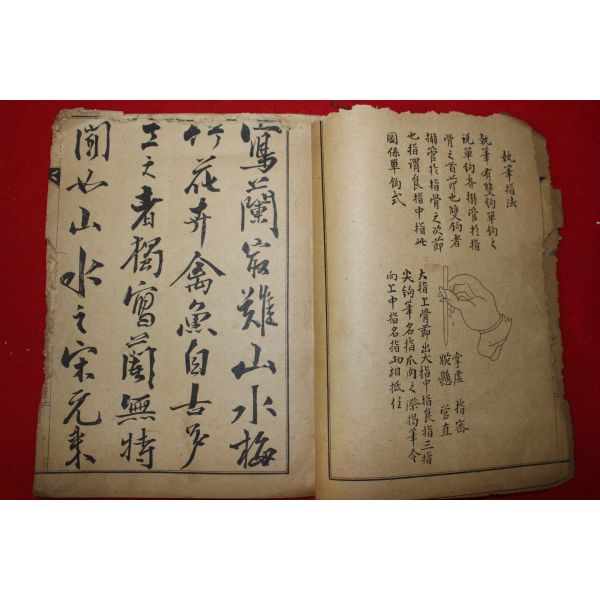 執筆指法
執筆有雙鉤單鉤之
說單鉤者搦管於指
骨之首節也雙鉤者
搦管於指骨之次節
也指謂食指中指此
圖係單鉤式
掌虛　指密
腕懸　管直
大指上骨節出大指中指食指三指
尖鉤筆名指爪肉之際揭筆令
向上中指名指兩相抵住
寫蘭最難山水梅
竹花卉禽魚自古多
工之者獨寫蘭無特
聞如山水之宋元來